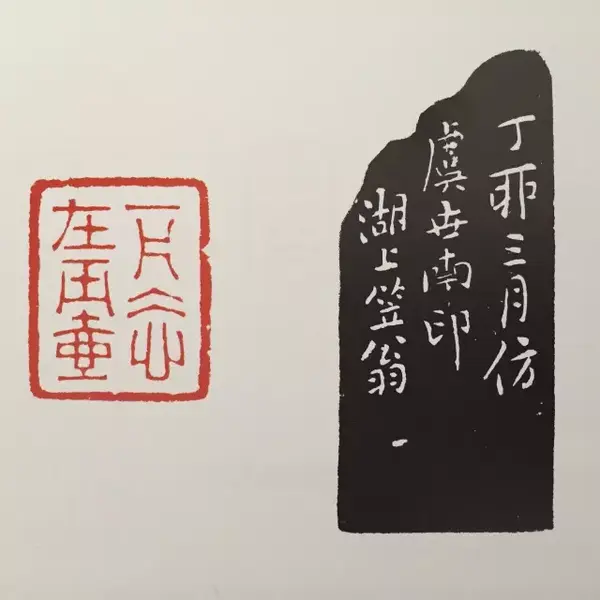 一片冰心
在玉壺
丁卯三月仿
虞世南印
湖上笠翁